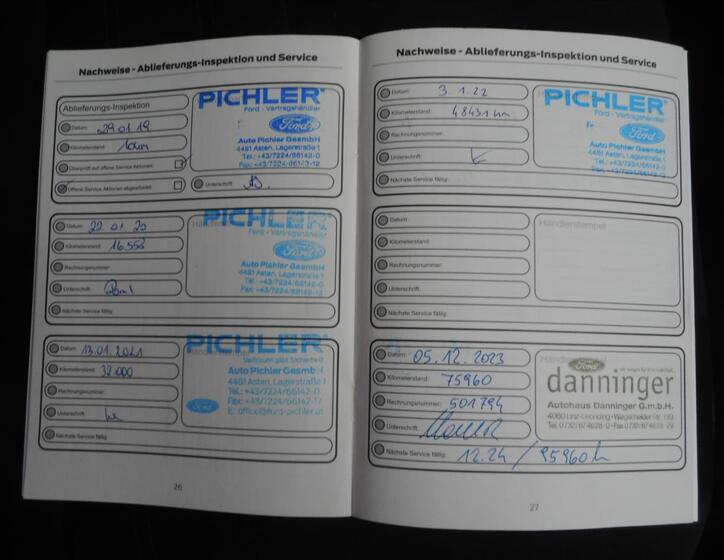 Nachweise - Ablieferungs-Inspektion und Service
Ablieferungs-Inspektion
Datum: 29 01 19
Kilometerstand: 10km
Überprüft auf offene Service Aktionen:
Offene Service Aktionen abgearbeitet:
Unterschrift:
PICHLER
Ford - Vertragshändler
Ford
Auto Pichler GesmbH
4481 Asten, Lagerstraße 1
Tel.: +43/7224/66142-0
Fax: +43/7224/66142-12
Datum: 22 01 20
Kilometerstand: 16.553
Rechnungsnummer:
Unterschrift:
Nächste Service fällig:
PICHLER
Ford - Vertragshändler
Ford
Auto Pichler GesmbH
4481 Asten, Lagerstraße 1
Tel.: +43/7224/66142-0
Fax: +43/7224/66142-12
Datum: 13.01.2021
Kilometerstand: 32000
Rechnungsnummer:
Unterschrift:
Nächste Service fällig:
PICHLER
Vertrauen gibt Sicherheit
Auto Pichler GesmbH
4481 Asten, Lagerstraße 1
Tel.: +43/7224/66142-0
Fax: +43/7224/66142-12
E: office@ford-pichler.at
Ford
26
Nachweise - Ablieferungs-Inspektion und Service
Datum: 3.1.22
Kilometerstand: 48431 km
Rechnungsnummer:
Unterschrift:
Nächste Service fällig:
PICHLER
Ford - Vertragshändler
Ford
Auto Pichler GesmbH
4481 Asten, Lagerstraße 1
Tel.: +43/7224/66142-0
Fax: +43/7224/66142-12
Datum:
Kilometerstand:
Rechnungsnummer:
Unterschrift:
Nächste Service fällig:
Händlerstempel
Datum: 05.12.2023
Kilometerstand: 75960
Rechnungsnummer: 501794
Unterschrift:
Nächste Service fällig: 12.24 / 95960 km
Ford
danninger
Autohaus Danninger G.m.b.H.
4060 Linz-Leonding • Wegscheider Str. 193
27